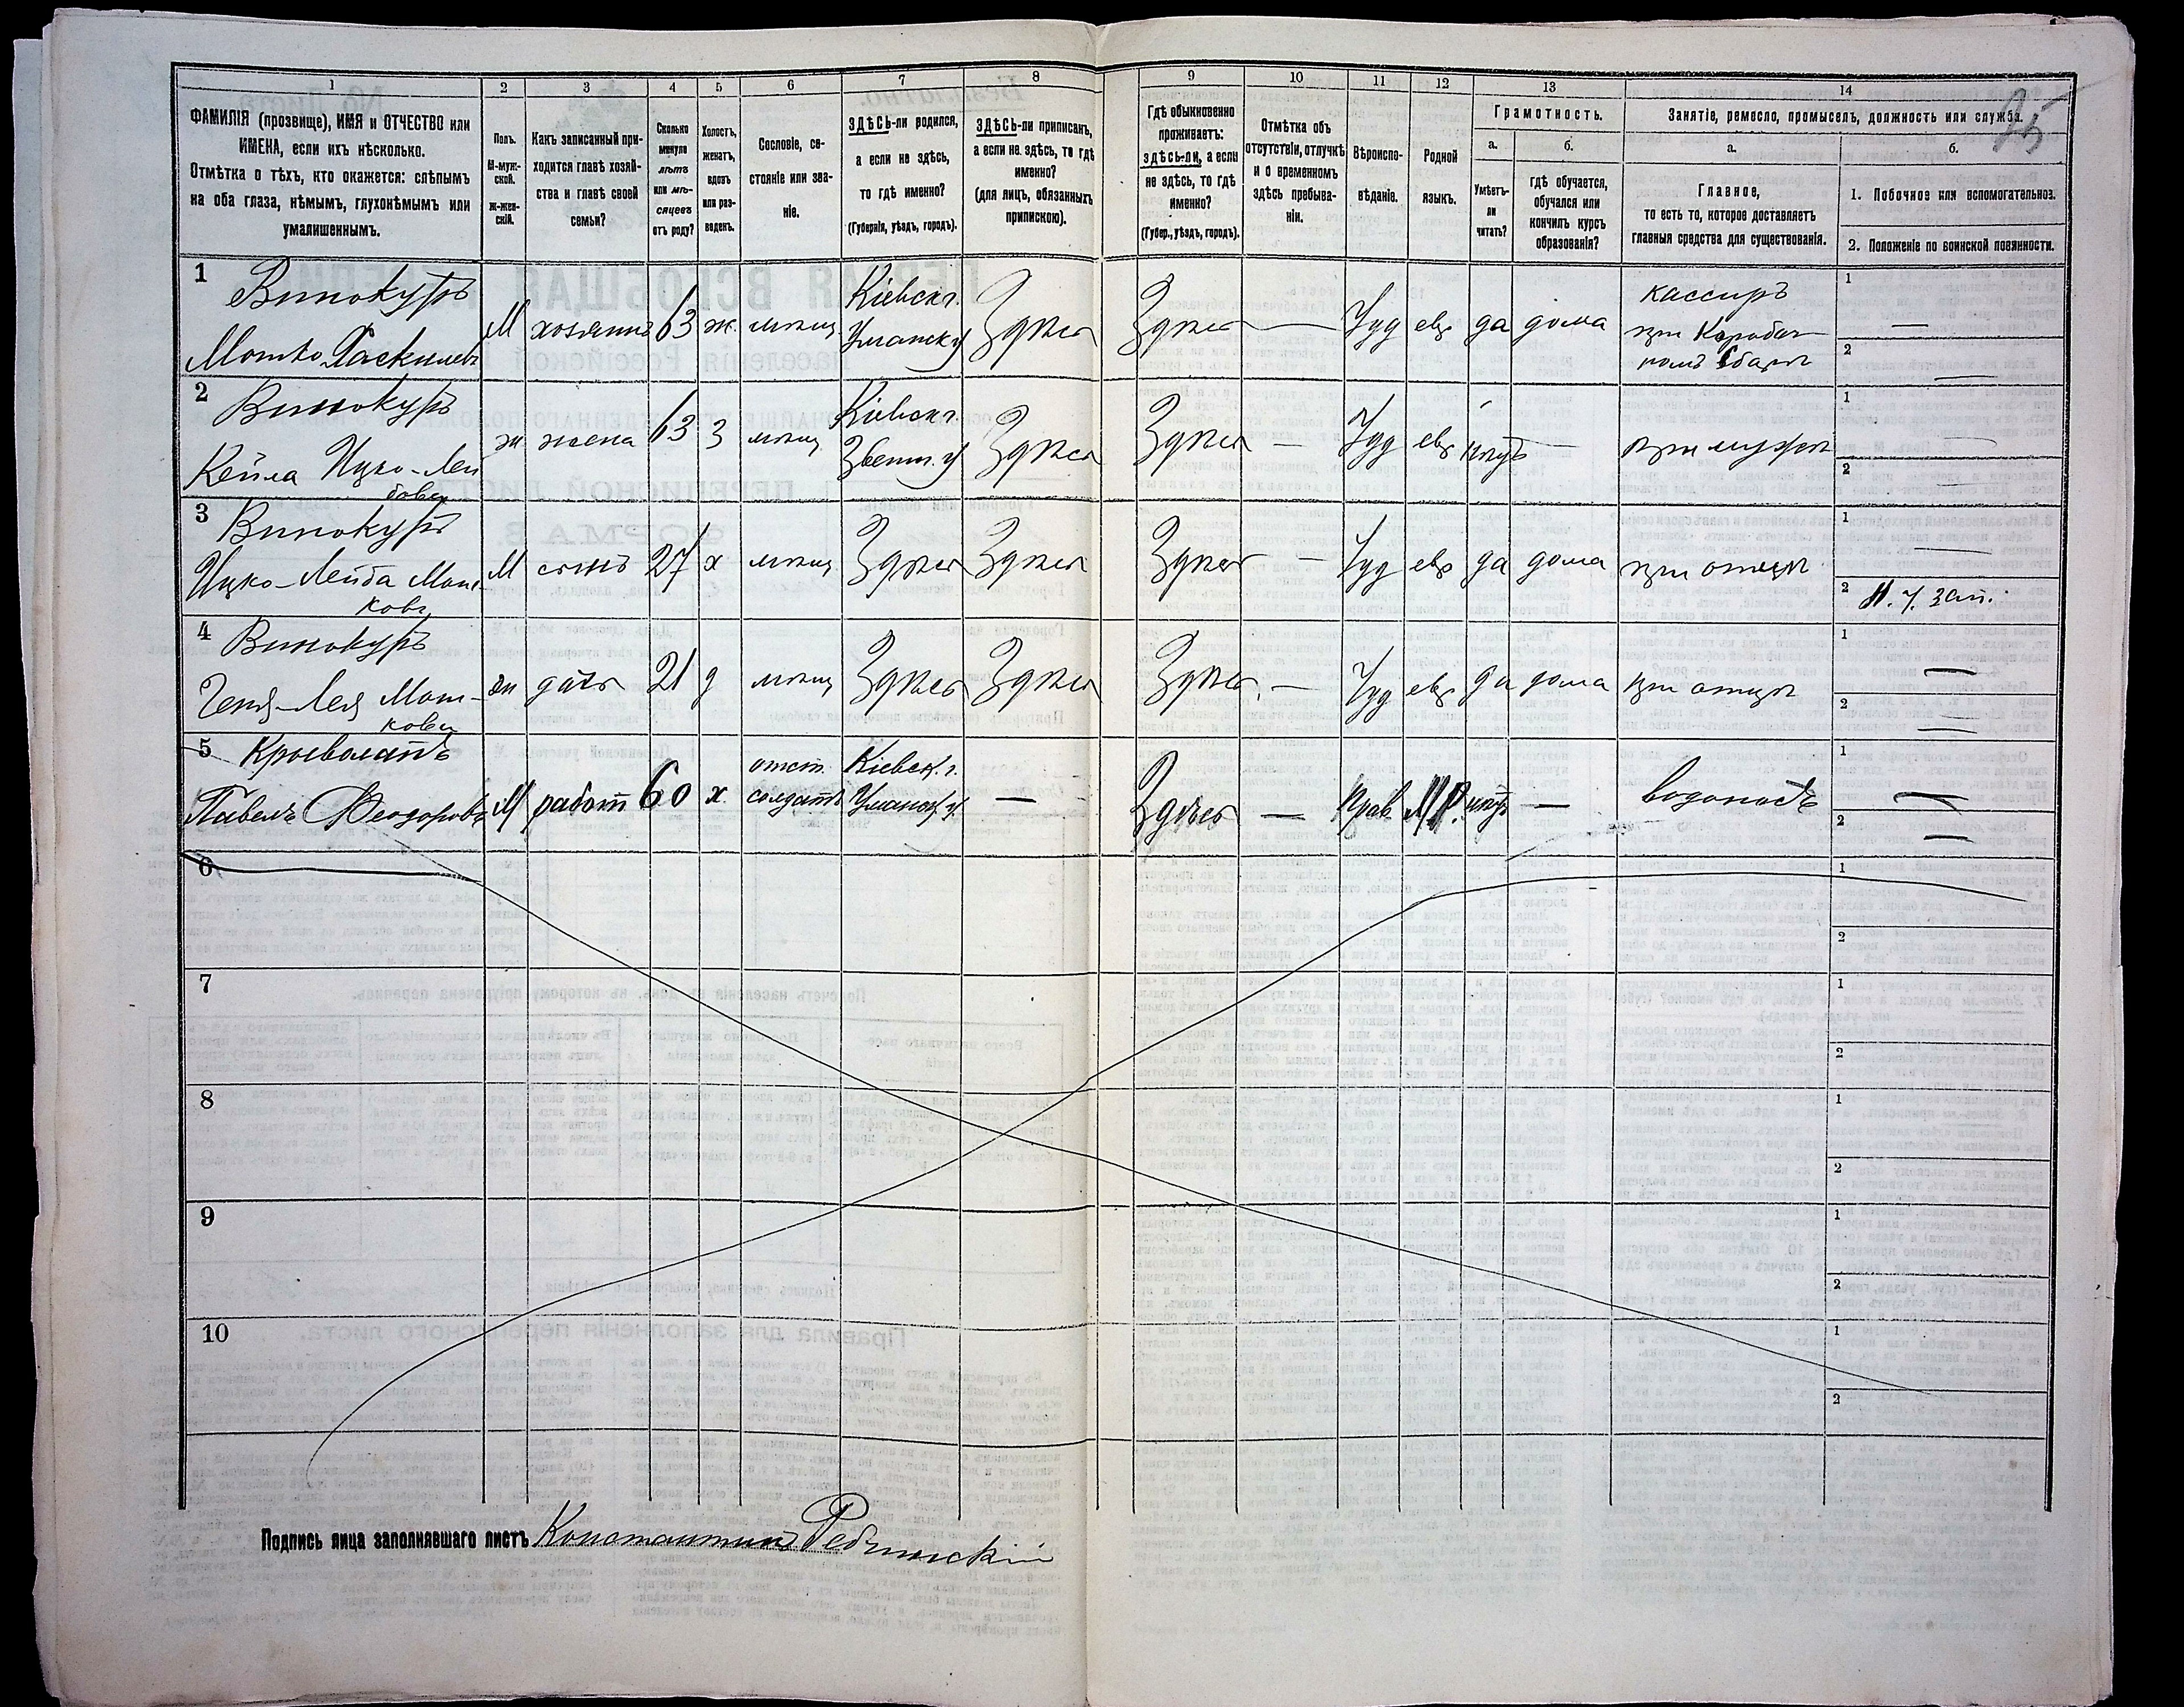 1 2 3 4 5 6 7 8 9 10 11 12 13 14
25
ФАМИЛІЯ (прозвище), ИМЯ и ОТЧЕСТВО или
ИМЕНА, если ихъ нѣсколько.
Отмѣтка о тѣхъ, кто окажется: слѣпымъ
на оба глаза, нѣмымъ, глухонѣмымъ или
умалишеннымъ.
Полъ.
М-муж-
ской.
Ж-жен-
скій.
Какъ записанный при-
ходится главѣ хозяй-
ства и главѣ своей
семьи?
Сколько
минуло
лѣтъ
или мѣ-
сяцевъ
отъ роду?
Холостъ,
женатъ,
вдовъ
или раз-
веденъ.
Сословіе, со-
стояніе или зва-
ніе.
ЗДѢСЬ-ли родился,
а если не здѣсь,
то гдѣ именно?
(Губернія, уѣздъ, городъ).
ЗДѢСЬ-ли приписанъ,
а если не здѣсь, то гдѣ
именно?
(для лицъ, обязанныхъ
припискою).
Гдѣ обыкновенно
проживаетъ:
здѣсь-ли, а если
не здѣсь, то гдѣ
именно?
(Губер., уѣздъ, городъ).
Отмѣтка объ
отсутствіи, отлучкѣ
и о временномъ
здѣсь пребыва-
ніи.
Вѣроиспо-
вѣданіе.
Родной
языкъ.
Грамотность.
а.
Умѣетъ-
ли
читать?
б.
гдѣ обучается,
обучался или
кончилъ курсъ
образованія?
Занятіе, ремесло, промыселъ, должность или служба.
а.
Главное,
то есть то, которое доставляетъ
главныя средства для существованія.
б.
1. Побочное или вспомогательное.
2. Положеніе по воинской повинности.
1 Винокуръ Кіевск г. кассиръ 1
Мошко М хозяинъ 63 ж. мѣщ Уманск у Здѣсь Здѣсь — Іуд евр да дома при Коробоч- —
номъ сборѣ 2 —
2 Винокуръ Кіевск г. 1
Кейла Ицко-Лей ж жена 63 з мѣщ Звениг. у Здѣсь Здѣсь — Іуд евр нѣтъ — при мужѣ —
бовы 2 —
3 Винокуръ 1
Ицко-Лейба Мош- М сынъ 27 х мѣщ Здѣсь Здѣсь Здѣсь — Іуд евр да дома при отцѣ —
ковъ 2 Н. Ч. зап.
4 Винокуръ 1
Геня-Лея Мош- ж дочь 21 д мѣщ Здѣсь Здѣсь Здѣсь — Іуд евр да дома при отцѣ —
кова 2 —
5 отст. Кіевск. г. 1
Павелъ Ѳеодоровъ М работ 60 х солдатъ Уманск. у. — Здѣсь — Прав М.Р. нѣтъ — водоносъ —
2 —
6 1
2
7 1
2
8 1
2
9 1
2
10 1
2
Подпись лица заполнявшаго листъ Константинъ